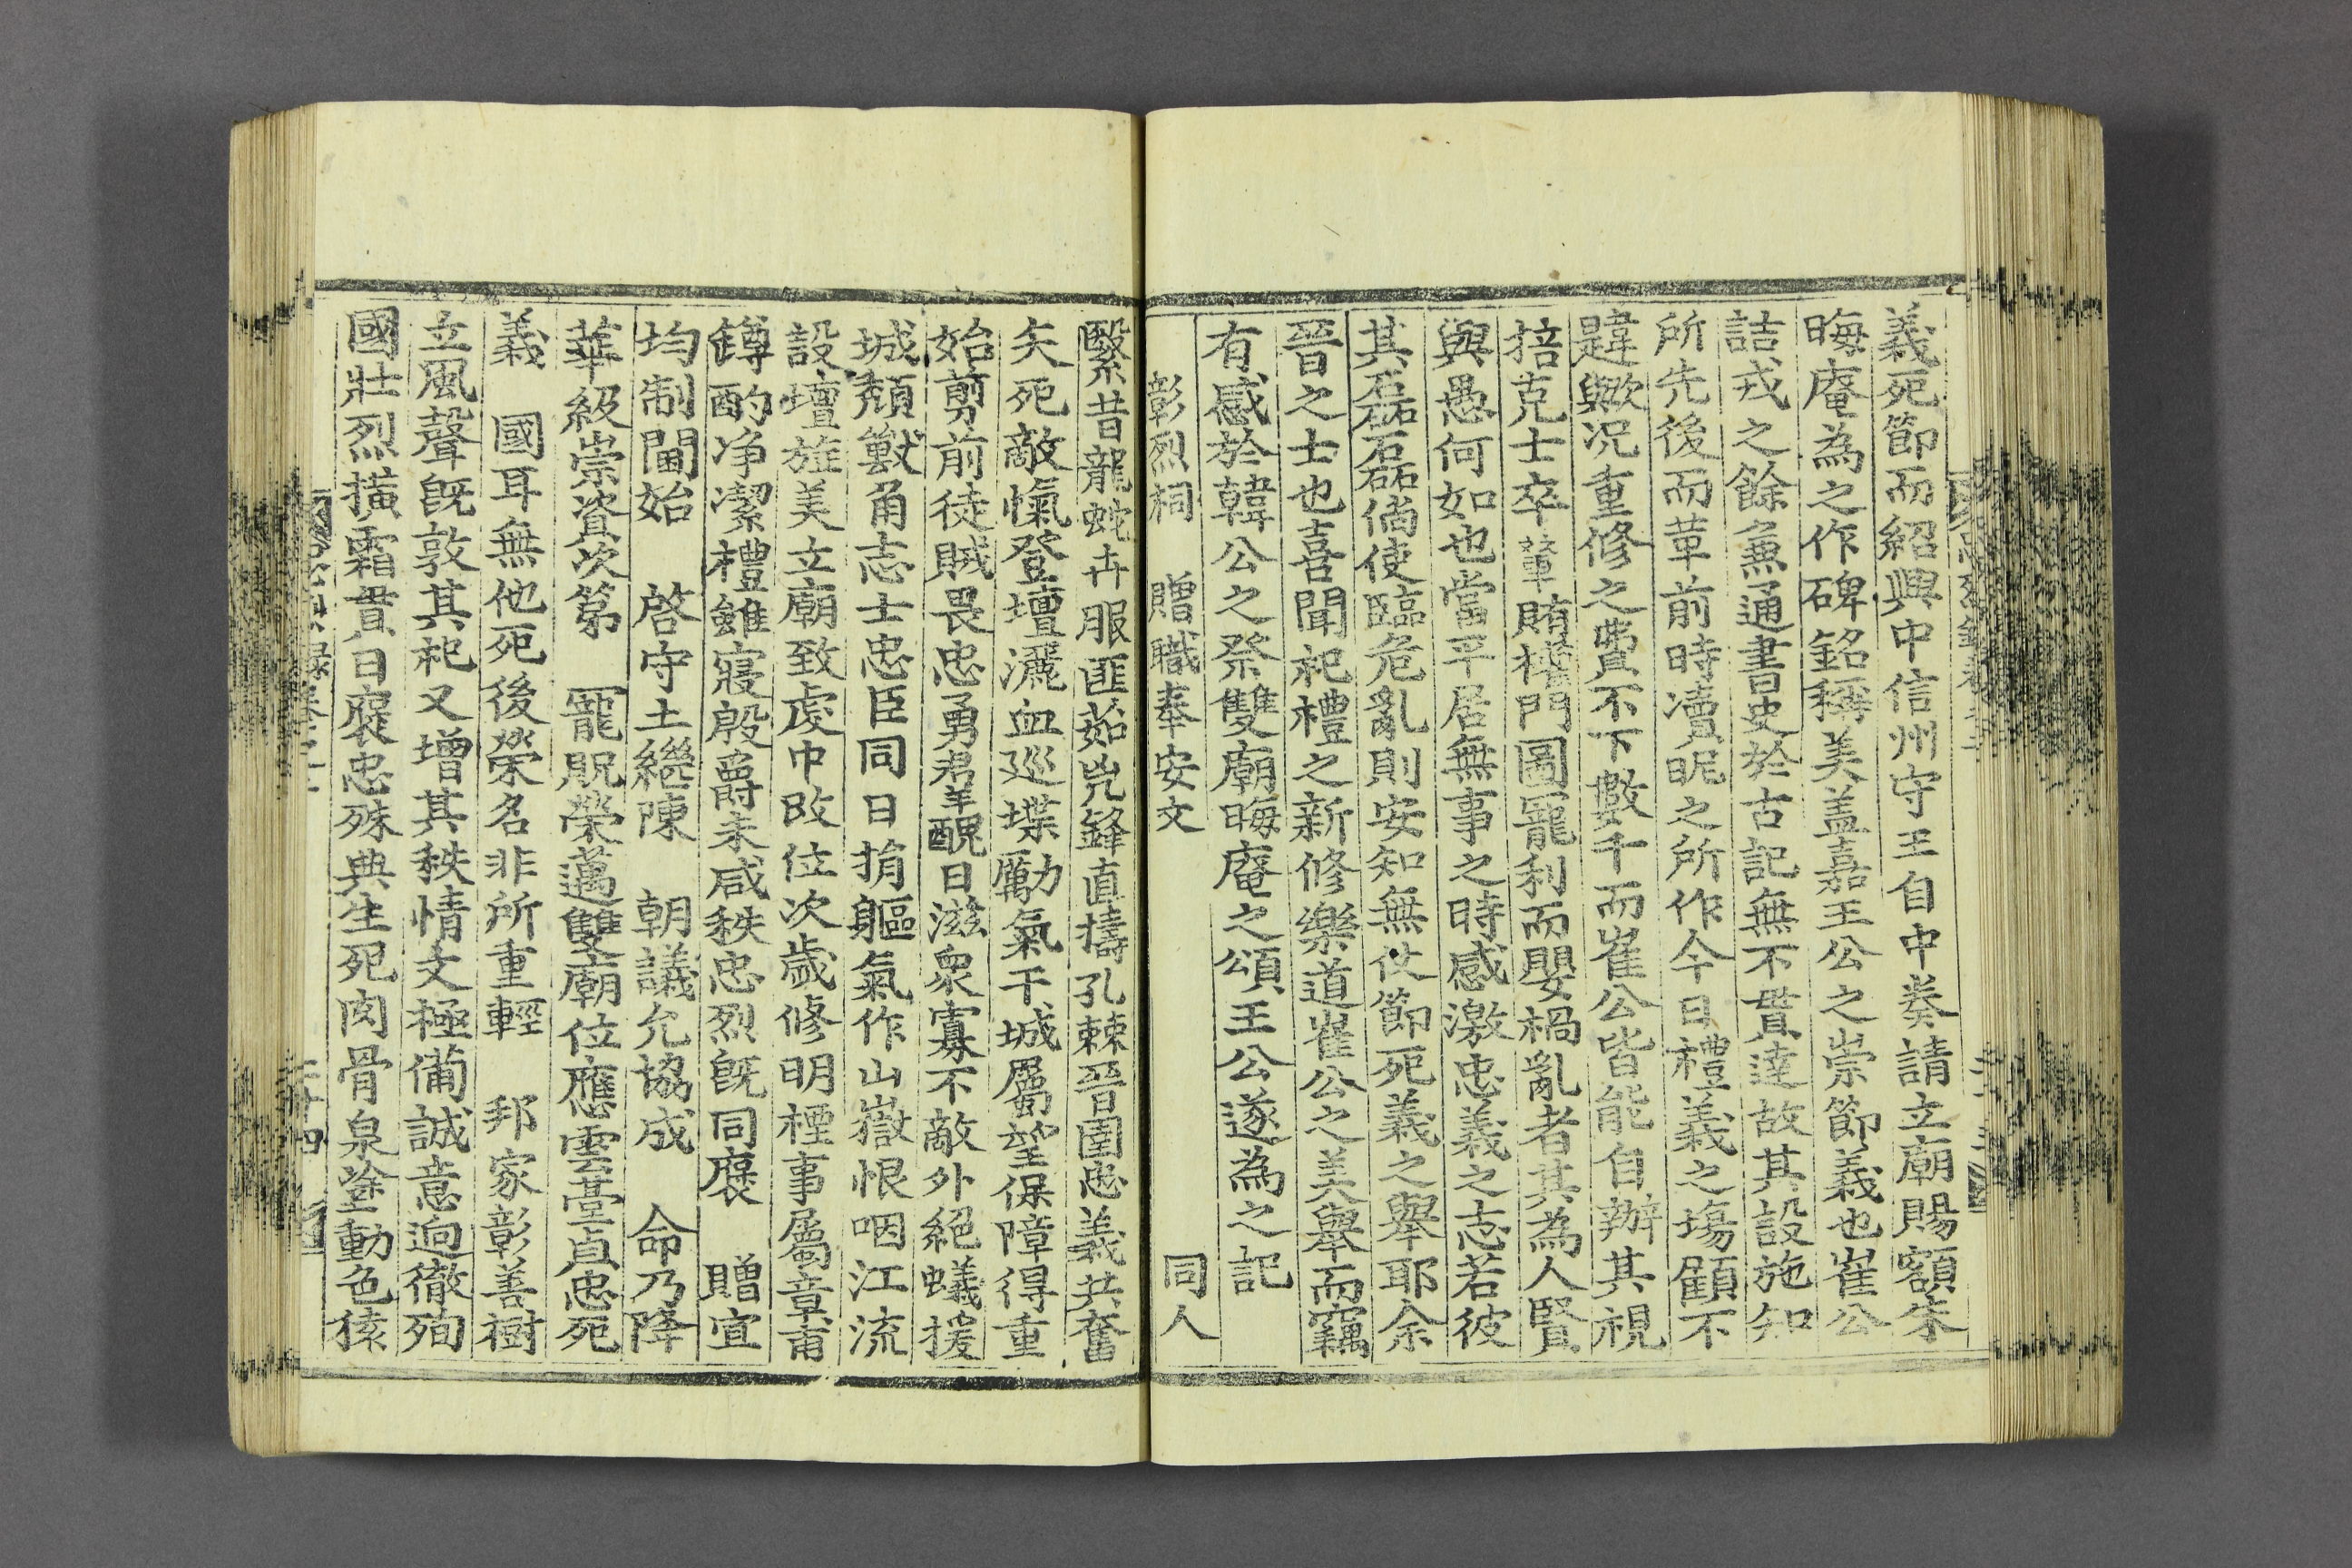 義死節而紹興中信州守王自中奏請立廟賜額朱
晦庵為之作碑銘稱美盖嘉王公之崇節義也崔公
詰戎之餘無通書史於古記無不貫達故其設施知
所先後而革前時瀆昵之所作今日禮義之塲顧不
韙歟况重修之費不下數千而崔公皆能自辦其視
掊克士卒輦賄權門圖寵利而嬰禍亂者其為人賢
與愚何如也當平居無事之時感激忠義之志若彼
其磊磊石倘使臨危亂則安知無仗節死義之舉耶余
晉之士也喜聞祀禮之新修樂道崔公之美舉而竊
有感於韓公之祭雙廟晦庵之頌王公遂為之記
彰烈祠 贈職奉安文 同人
繄昔龍蛇卉服匪茹兇鋒直擣孔棘晉圉忠義共奮
矢死敵愾登壇灑血巡堞勵氣干城屬望保障得重
始剪前徒賊畏忠勇羣醜日滋衆寡不敵外絕蟻援
城頹獸角志士忠臣同日捐軀氣作山嶽恨咽江流
設壇旌美立廟致虔中改位次歲修明禋事屬章甫
鐏酌净潔禮雖寢殷爵未咸秩忠烈旣同褒 贈宜
均制閫始 啓守土繼陳 朝議允協成 命乃降
華級崇資次第 寵貺榮邁雙廟位應雲臺貞忠死
義 國耳無他死後榮名非所重輕 邦家彰善樹
立風聲旣敦其祀又增其秩情文極備誠意逈徹殉
國壯烈橫霜貫日褒忠殊典生死肉骨泉塗動色猿